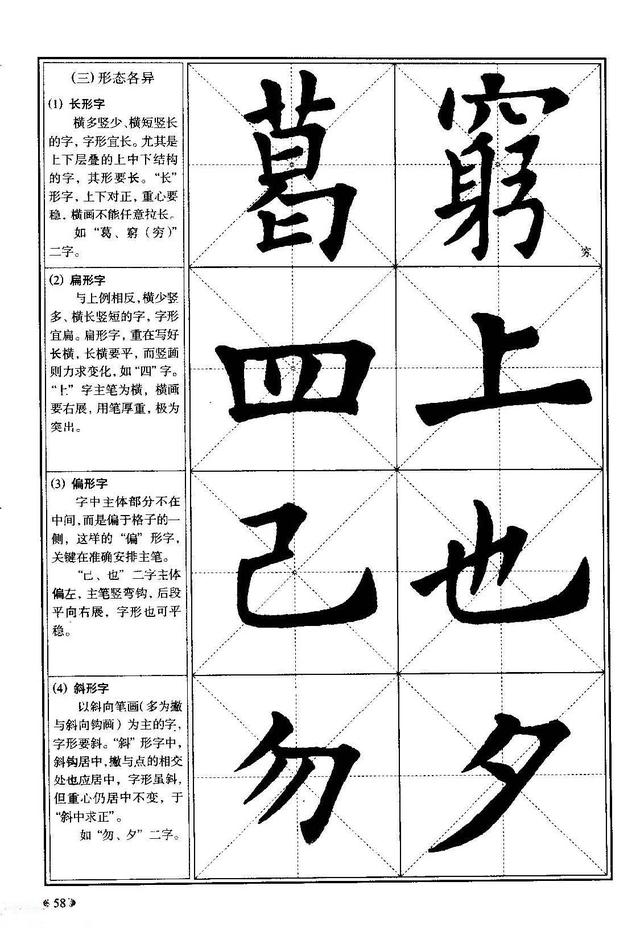 (三)形态各异
(1) 长形字
横多竖少、横短竖长
的字，字形宜长。尤其是
上下层叠的上中下结构
的字，其形要长。“长”
形字，上下对正，重心要
稳，横画不能任意拉长。
如“葛、窮（穷）”
二字。
葛 窮
穷
(2) 扁形字
与上例相反，横少竖
多、横长竖短的字，字形
宜扁。扁形字，重在写好
长横，长横要平，而竖画
则力求变化，如“四”字。
“上”字主笔为横，横画
要右展，用笔厚重，极为
突出。
四 上
(3) 偏形字
字中主体部分不在
中间，而是偏于格子的一
侧，这样的“偏”形字，
关键在准确安排主笔。
“己、也”二字主体
偏左，主笔竖弯钩，后段
平向右展，字形也可平
稳。
己 也
(4) 斜形字
以斜向笔画（多为撇
与斜向钩画）为主的字，
字形要斜。“斜”形字中，
斜钩居中，撇与点的相交
处也应居中，字形虽斜，
但重心仍居中不变，于
“斜中求正”。
如“勿、夕”二字。
勿 夕
58